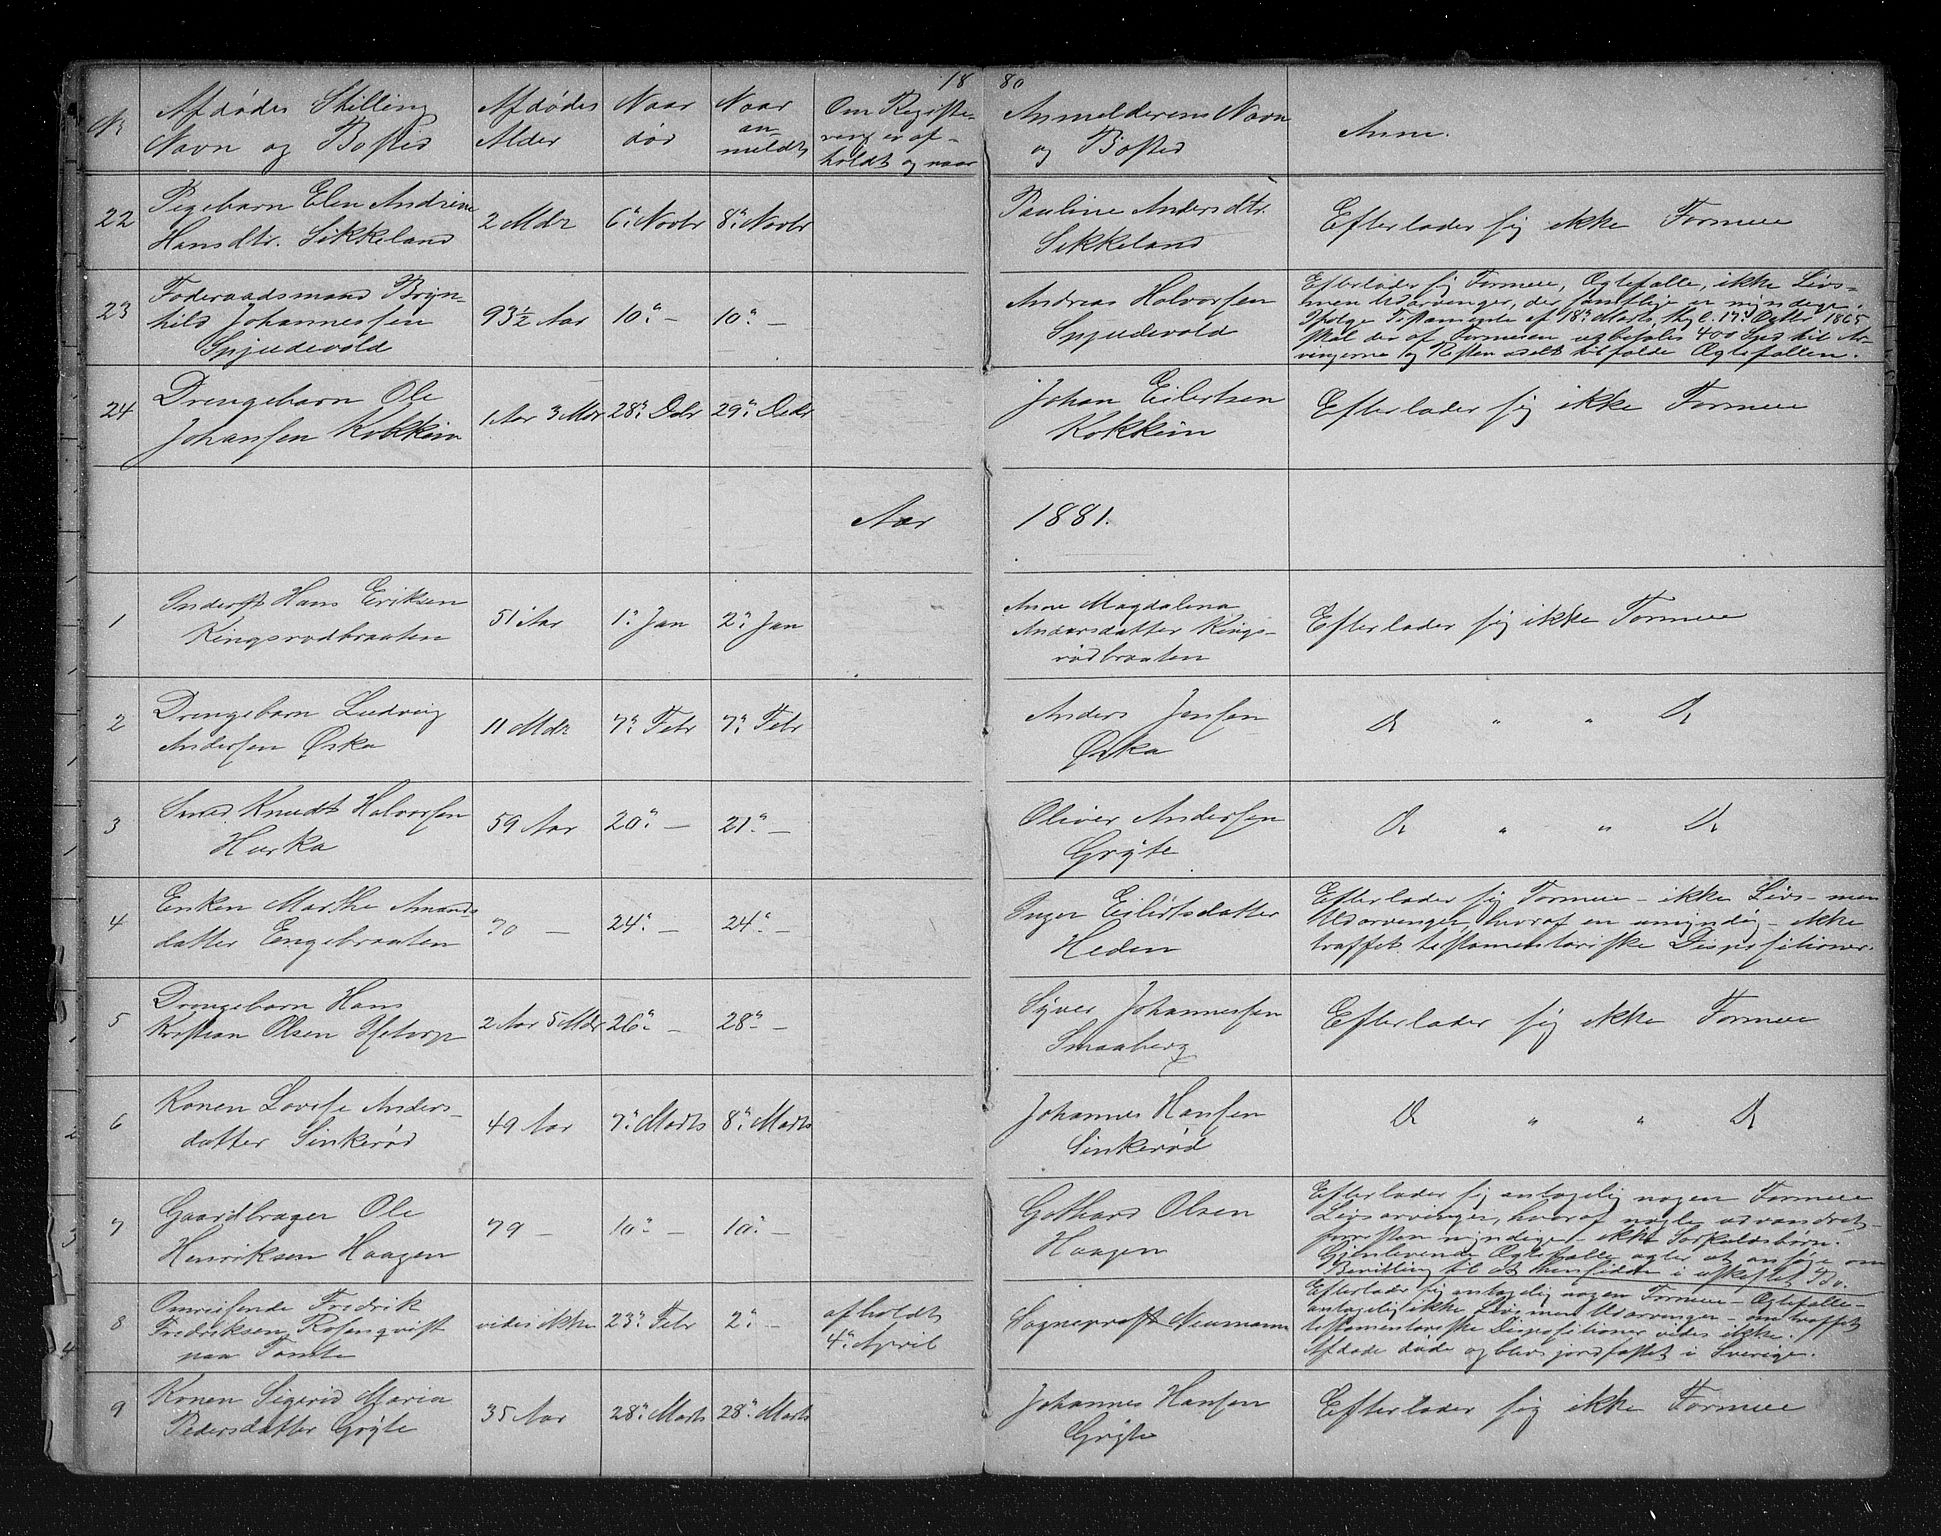 18 80
No
Afdødes Stilling
Navn og Bosted
Afdødes
Alder
Naar
død
Naar
an-
meldt
Om Registe-
rering er af-
holdt og naar
Anmelderens Navn
og Bosted
Anm.
22
Pigebarn Elen Andrine
Hansdtr. Sikkeland
2 Mdr
6. Novbr
8. Novbr
Pauline Andersdtr.
Sikkeland
Efterlader sig ikke Formue
23
Føderaadsmand Bryn-
hild Johannessen
Spjudevold
93½ Aar
10. —
10. —
Andreas Halvorsen
Spjudevold
Efterlader sig Formue, Ægtefælle, ikke Livs-
men Udarvinger, der samtlige er myndige.
Ifølge Testamente af 18. Marts, kgl. 17. Octbr 1865
skal der af Formuen udbetales 400 Spd til Ar-
vingerne og Resten udelt tilfalde Ægtefællen.
24
Drengebarn Ole
Johansen Kokkim
1 Aar 3 Mdr
28. Decbr
29. Decbr
Johan Eilertsen
Kokkim
Efterlader sig ikke Formue
Aar 1881.
1
Inderst Hans Eriksen
Kingsrødbraaten
51 Aar
1. Jan
2. Jan
Anne Magdalena
Andersdatter Kings-
rødbraaten
Efterlader sig ikke Formue
2
Drengebarn Ludvig
Andersen Ørka
11 Mdr
7. Febr
7. Febr
Anders Jensen
Ørka
Do " " Do
3
Smed Knudt Halvorsen
Hurka
59 Aar
20. —
21. —
Oliver Andersen
Gryte
Do " " Do
4
Enken Marthe Amunds
datter Engebraaten
70 —
24. —
24. —
Inger Eilertsdatter
Heden
Efterlader sig Formue - ikke Livs- men
Udarvinger, hvoraf en umyndig - ikke
truffet testamentariske Dispositioner.
5
Drengebarn Hans
Kristian Olsen
2 Aar 5 Mdr
26. —
28. —
Syver Johannessen
Smaaberg
Efterlader sig ikke Formue
6
Konen Lovise Anders-
datter Sinkerød
49 Aar
7. Marts
8. Marts
Johannes Hansen
Sinkerød
Do " " Do
7
Gaardbruger Ole
Henriksen Haagen
79 —
10. —
10. —
Gothard Olsen
Haagen
Efterlader sig antagelig nogen Formue
Livsarvinger, hvoraf nogle udvandret -
forresten myndige - ikke Særkuldsbørn.
Gjenlevende Ægtefælle agter at ansøge om
Bevilling til at hensidde i uskiftet Bo.
8
Omreisende Fredrik
Fredriksen Rosenqvist
paa Tomte
vides ikke
23. Febr
2. —
afholdt
4. April
Sogneprest Neumann
Efterlader sig antagelig nogen Formue - Ægtefælle -
antagelig ikke Livs men Udarvinger - om truffet
testamentariske Dispositioner vides ikke.
Afdøde døde og blev jordfæstet i Sverige.
9
Konen Sigerid Maria
Pedersdatter Gryte
35 Aar
28. Marts
28. Marts
Johannes Hansen
Gryte
Efterlader sig ikke Formue